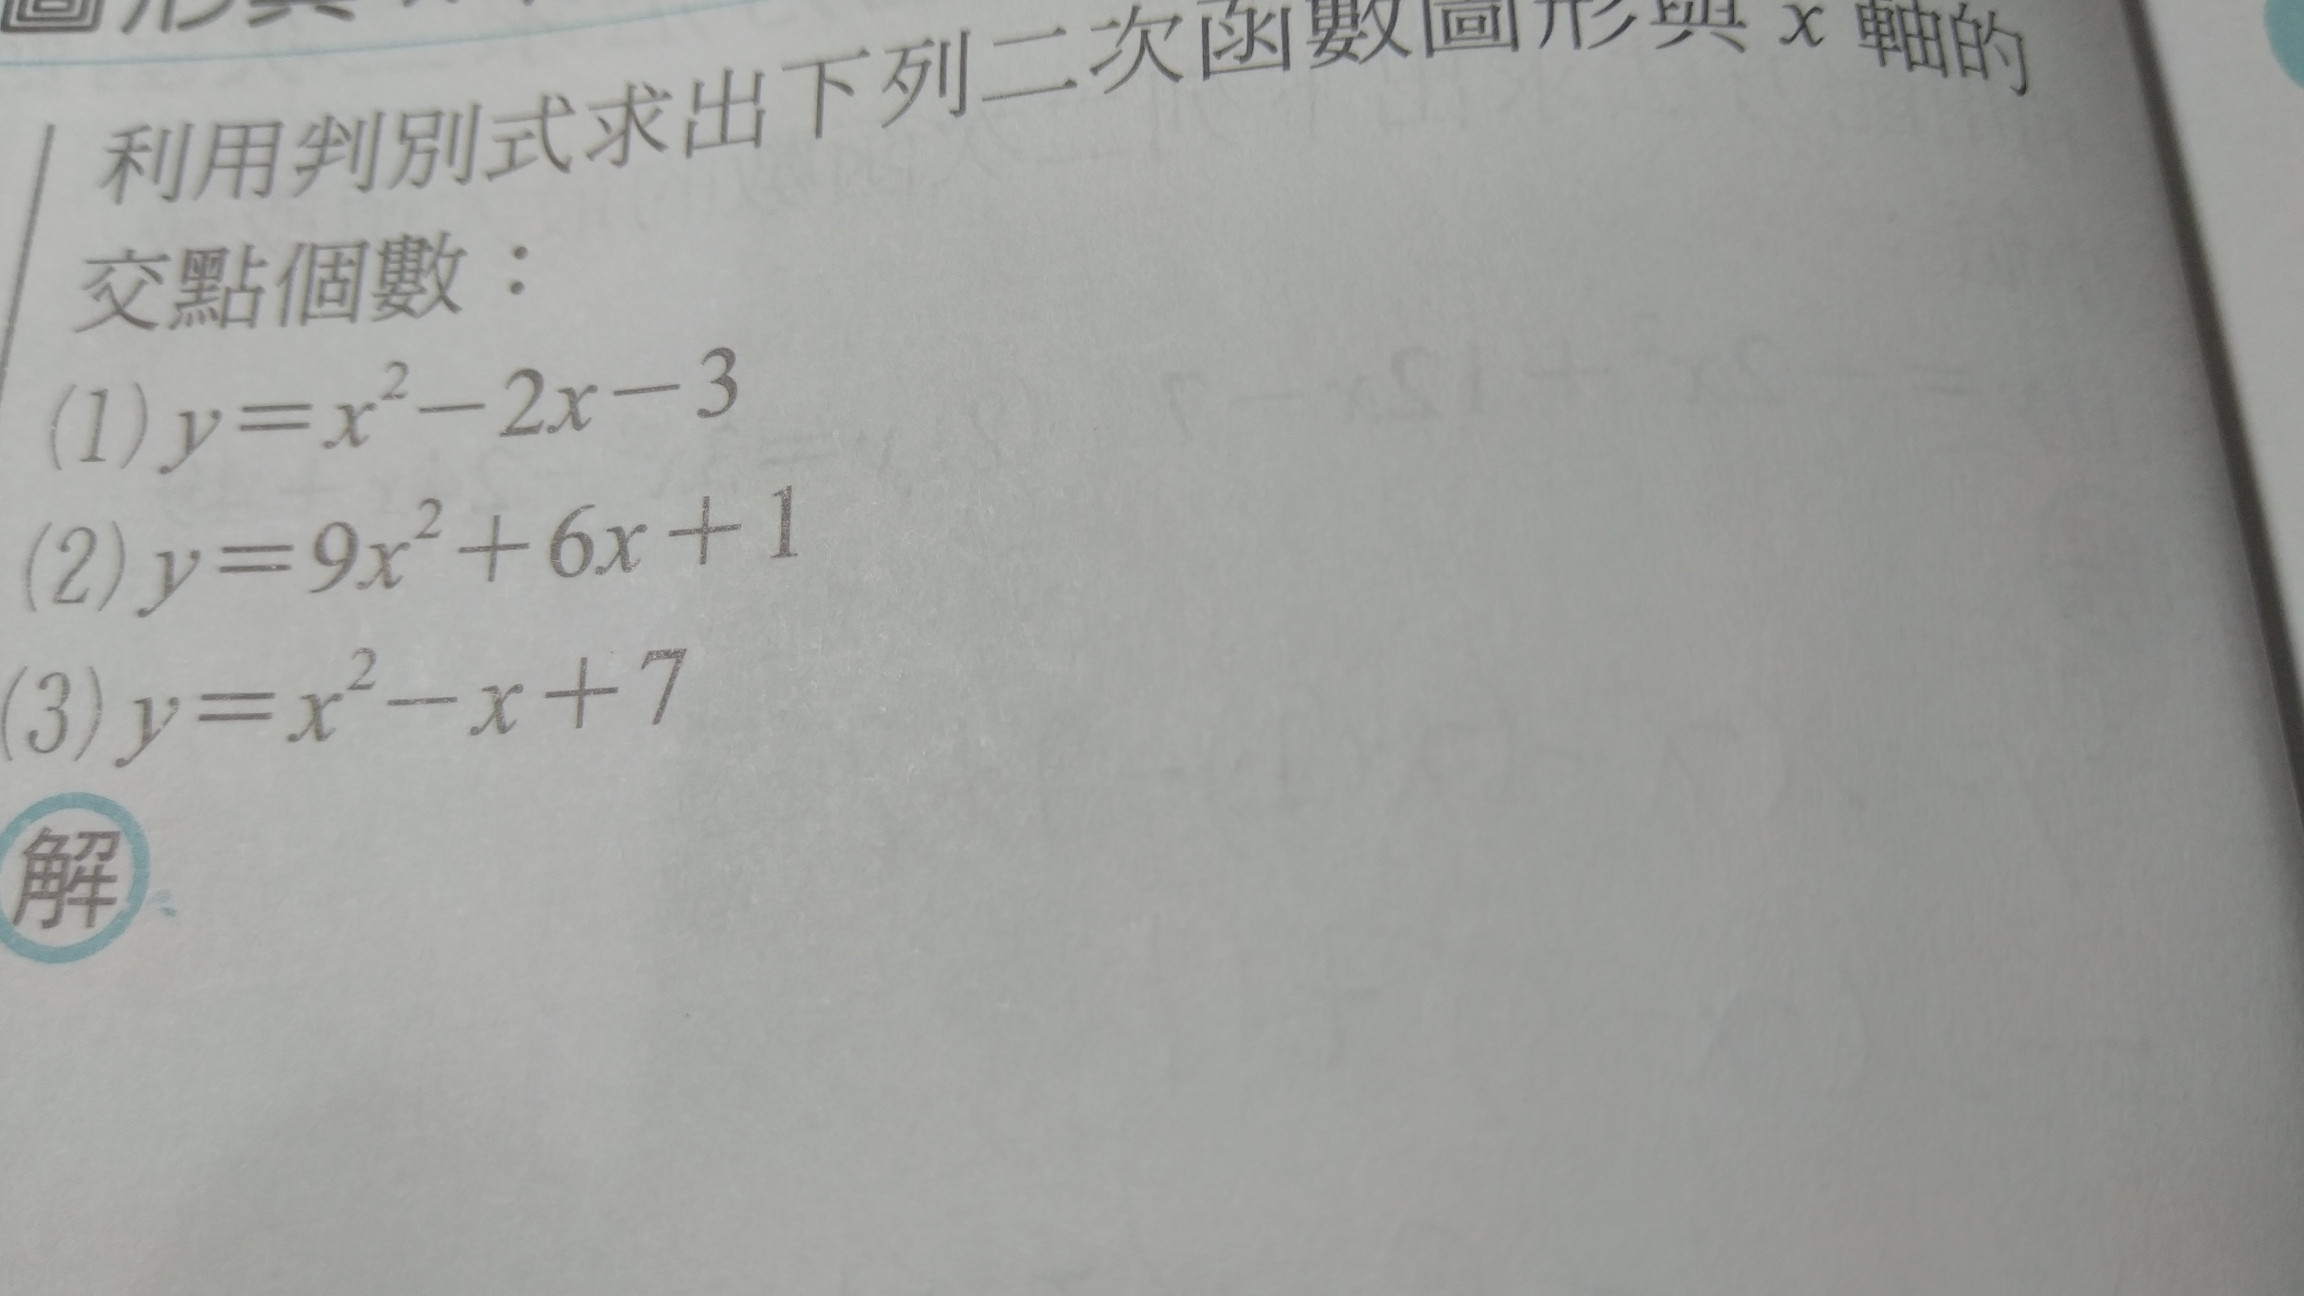 利用判別式求出下列二次函數圖形與 x 軸的
交點個數：
(1) y＝x²－2x－3
(2) y＝9x²＋6x＋1
(3) y＝x²－x＋7
解